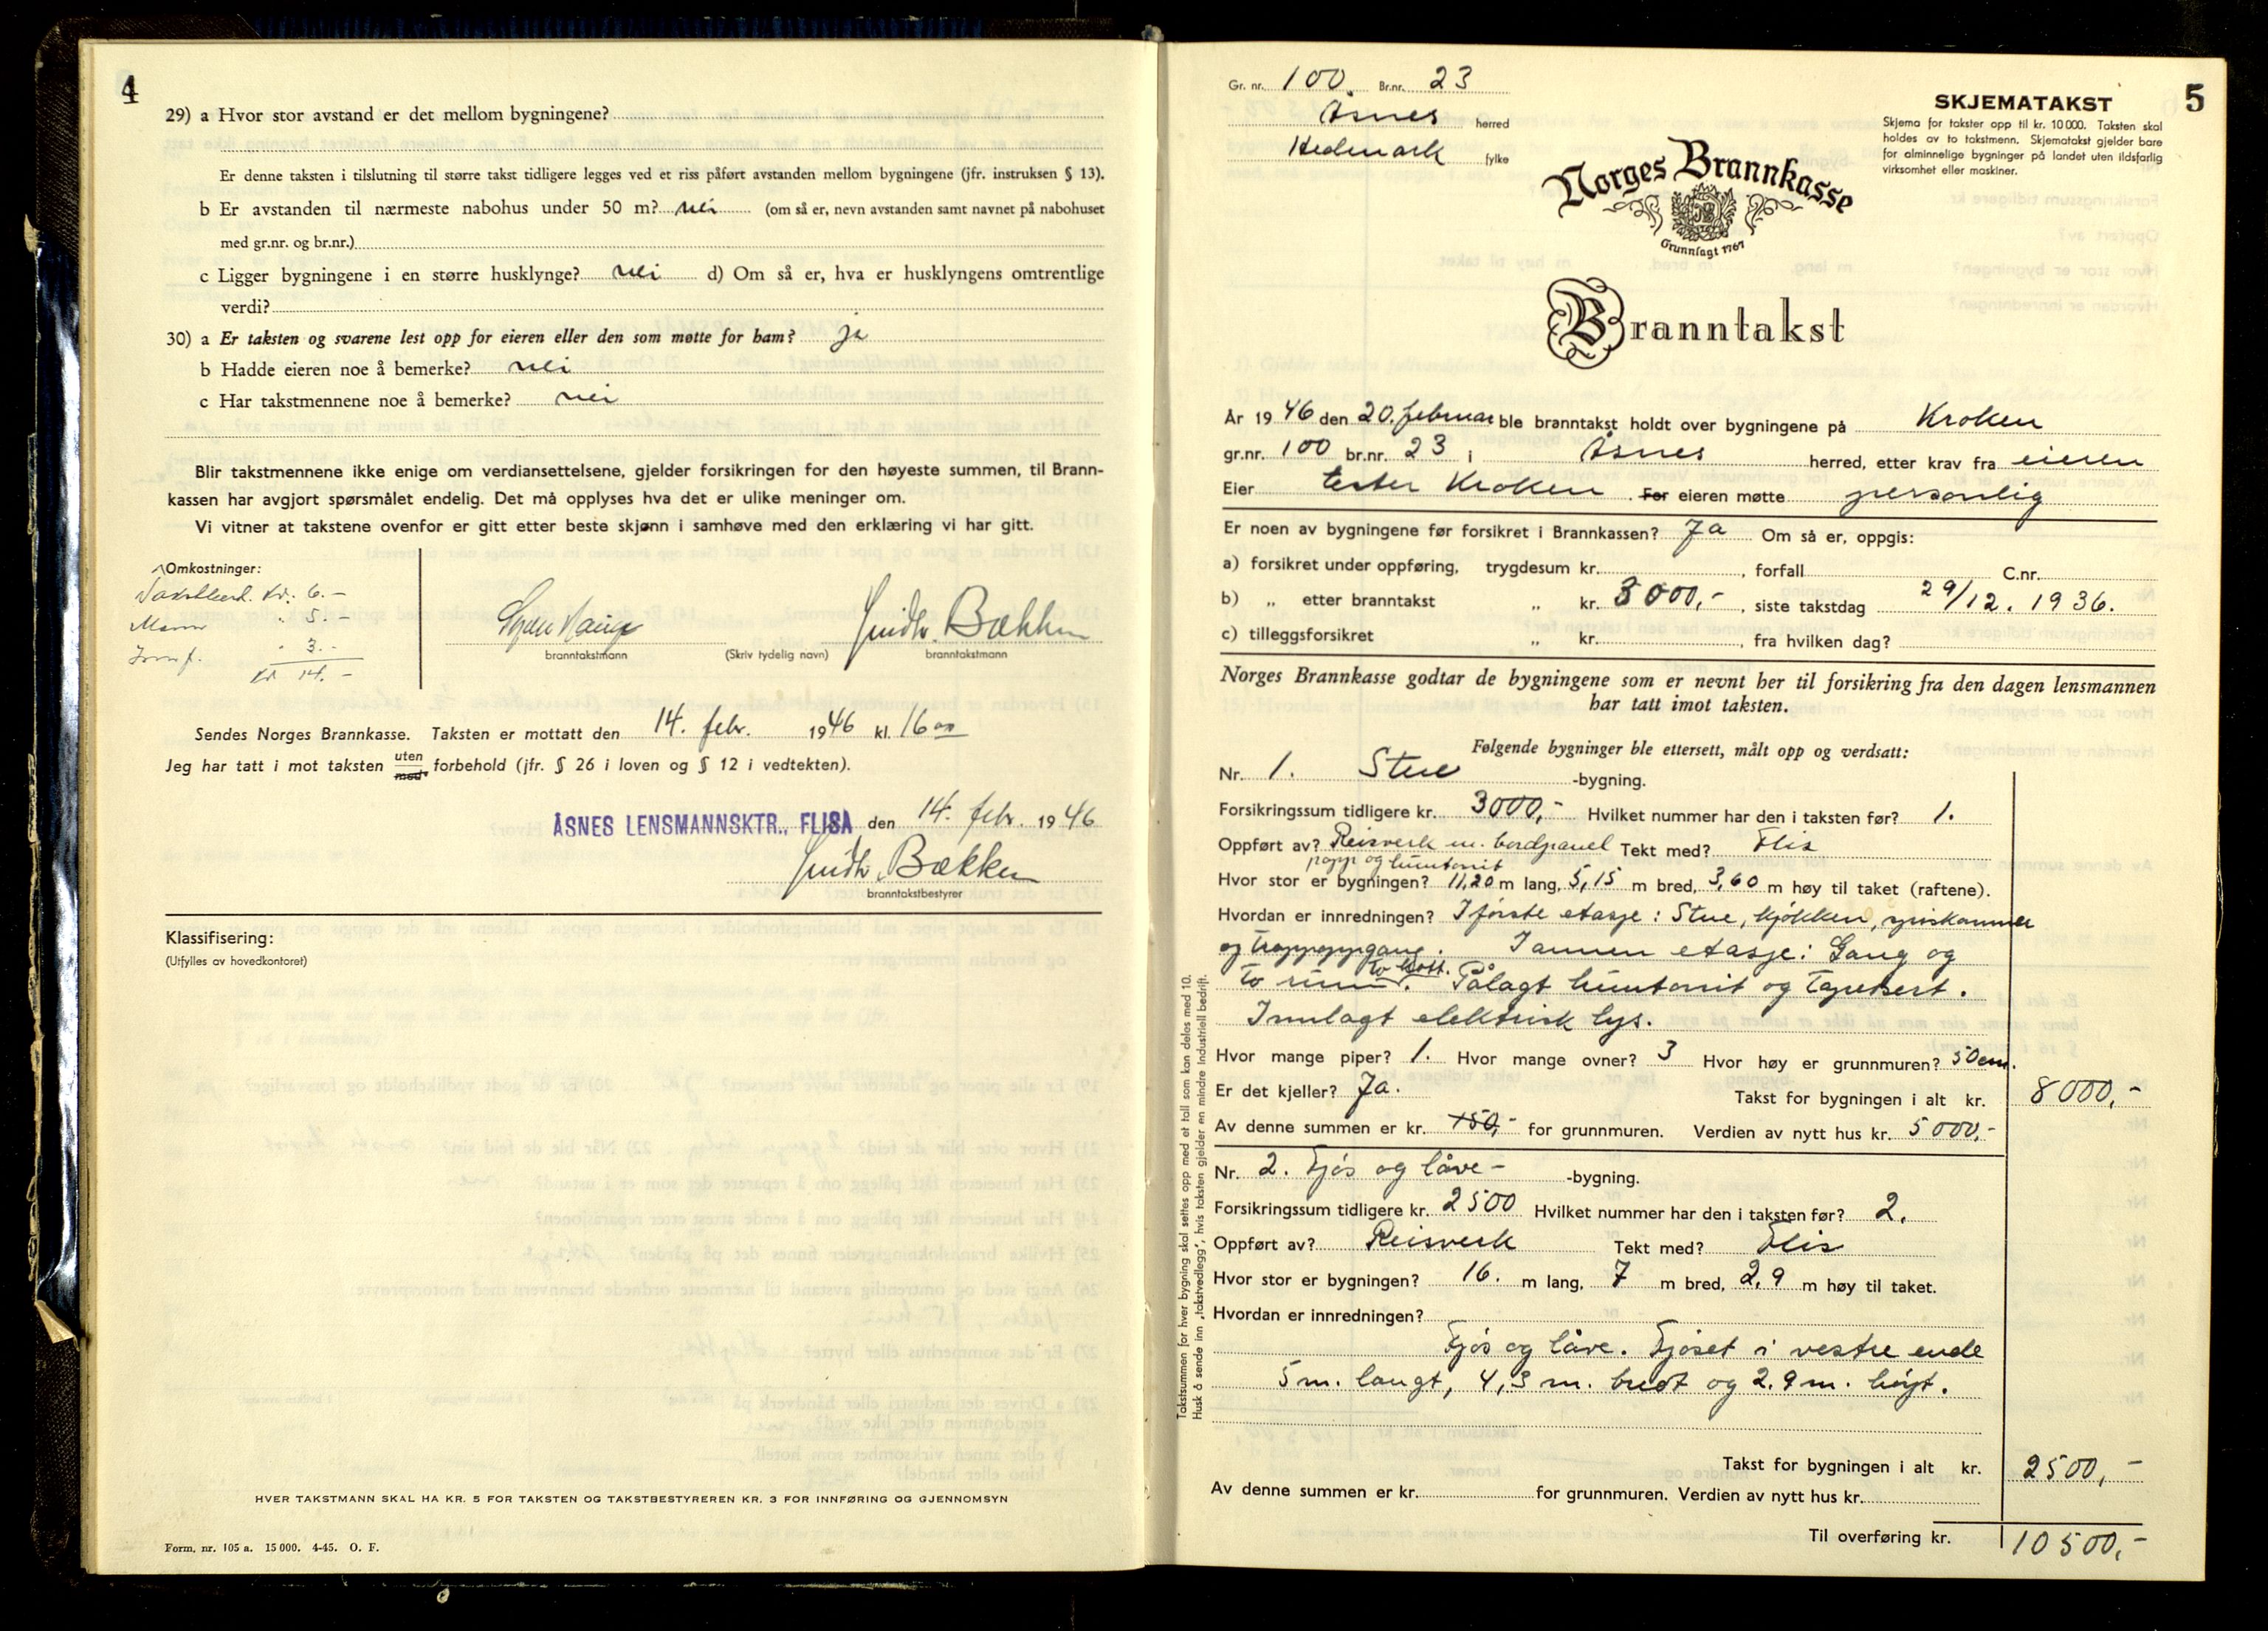 4
29) a Hvor stor avstand er det mellom bygningene?
Er denne taksten i tilslutning til større takst tidligere legges ved et riss påført avstanden mellom bygningene (jfr. instruksen § 13).
b Er avstanden til nærmeste nabohus under 50 m? nei (om så er, nevn avstanden samt navnet på nabohuset
med gr.nr. og br.nr.)
c Ligger bygningene i en større husklynge? nei d) Om så er, hva er husklyngens omtrentlige
verdi?
30) a Er taksten og svarene lest opp for eieren eller den som møtte for ham? ja
b Hadde eieren noe å bemerke? nei
c Har takstmennene noe å bemerke? nei
Blir takstmennene ikke enige om verdiansettelsene, gjelder forsikringen for den høyeste summen, til Brann-
kassen har avgjort spørsmålet endelig. Det må opplyses hva det er ulike meninger om.
Vi vitner at takstene ovenfor er gitt etter beste skjønn i samhøve med den erklæring vi har gitt.
Omkostninger:
kr. 6.-
Mann " 5.-
Innf. " 3.-
kr 14.-
Bækken
branntakstmann (Skriv tydelig navn) branntakstmann
Sendes Norges Brannkasse. Taksten er mottatt den 14. febr. 1946 kl. 16 00
Jeg har tatt i mot taksten uten med forbehold (jfr. § 26 i loven og § 12 i vedtekten).
ÅSNES LENSMANNSKTR., FLISA, den 14. febr. 1946
Bækken
branntakstbestyrer
Klassifisering:
(Utfylles av hovedkontoret)
HVER TAKSTMANN SKAL HA KR. 5 FOR TAKSTEN OG TAKSTBESTYREREN KR. 3 FOR INNFØRING OG GJENNOMSYN
Form. nr. 105 a. 15 000. 4-45. O. F.
5
Gr. nr. 100 Br.nr. 23
Åsnes herred
Hedmark fylke
SKJEMATAKST
Skjema for takster opp til kr. 10 000. Taksten skal
holdes av to takstmenn. Skjematakst gjelder bare
for alminnelige bygninger på landet uten ildsfarlig
virksomhet eller maskiner.
Norges Brannkasse
Grunnlagt 1767
Branntakst
År 1946 den 20. februar ble branntakst holdt over bygningene på Kroken
gr.nr. 100 br.nr. 23 i Åsnes herred, etter krav fra eieren
Eier Ester Kroken. For eieren møtte personlig
Er noen av bygningene før forsikret i Brannkassen? Ja Om så er, oppgis:
a) forsikret under oppføring, trygdesum kr. , forfall C.nr.
b) „ etter branntakst „ kr. 3000,- , siste takstdag 29/12. 1936.
c) tilleggsforsikret „ kr. , fra hvilken dag?
Norges Brannkasse godtar de bygningene som er nevnt her til forsikring fra den dagen lensmannen
har tatt imot taksten.
Følgende bygninger ble ettersett, målt opp og verdsatt:
Nr. 1. Stue -bygning.
Forsikringssum tidligere kr. 3000,- Hvilket nummer har den i taksten før? 1.
Oppført av? Reisverk m. bordpanel Tekt med? Flis
papp og huntonit
Hvor stor er bygningen? 11,20 m lang, 5,15 m bred, 3,60 m høy til taket (raftene).
Hvordan er innredningen? I første etasje: Stue, kjøkken, spiskammer
og trappoppgang. I annen etasje: Gang og
to rum to kott. Pålagt huntonit og tapetsert.
Innlagt elektrisk lys.
Hvor mange piper? 1. Hvor mange ovner? 3 Hvor høy er grunnmuren? 50 cm.
Er det kjeller? Ja. Takst for bygningen i alt kr. 8000,-
Av denne summen er kr. 750,- for grunnmuren. Verdien av nytt hus kr. 5000,-
Nr. 2. Fjøs og låve- -bygning.
Forsikringssum tidligere kr. 2500 Hvilket nummer har den i taksten før? 2.
Oppført av? Reisverk Tekt med? Flis
Hvor stor er bygningen? 16. m lang, 7 m bred, 2,9 m høy til taket.
Hvordan er innredningen?
Fjøs og låve. Fjøset i vestre ende
5 m. langt, 4,3 m. bredt og 2.9 m. høyt.
Takst for bygningen i alt kr. 2500,-
Av denne summen er kr. for grunnmuren. Verdien av nytt hus kr.
Til overføring kr. 10500,-
Takstsummen for hver bygning skal settes opp med et tall som kan deles med 10.
Husk å sende inn „takstvedlegg“, hvis taksten gjelder en mindre industriell bedrift.